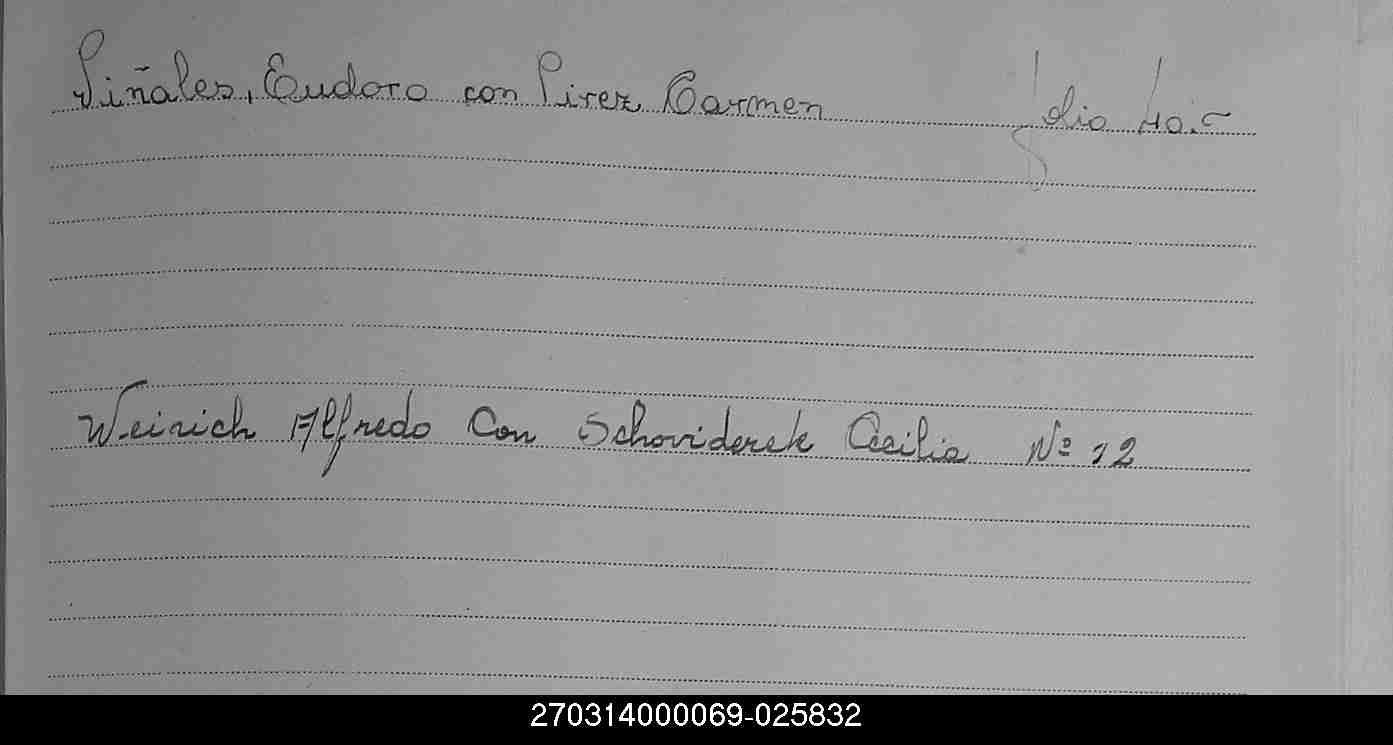 Viñales, Eudoro con Pirez Carmen folio 40.-
Weirich Alfredo Con Schoviderek Cecilia Nº 12
270314000069-025832